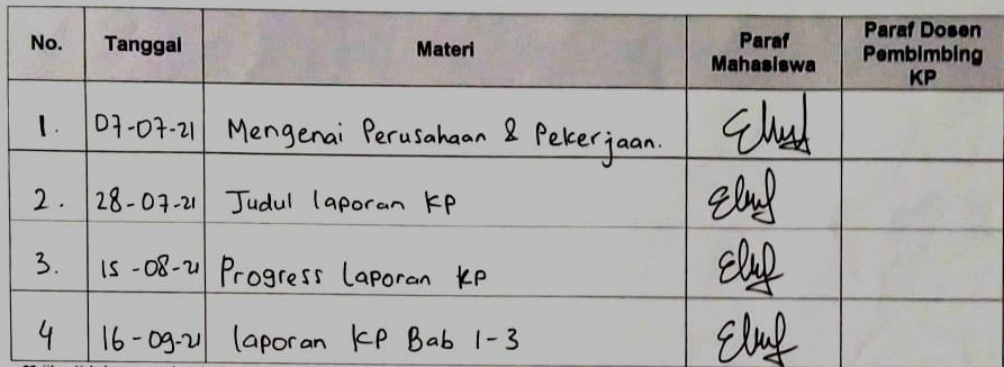 No. Tanggal Materi Paraf Mahasiswa Paraf Dosen Pembimbing KP
1. 07-07-21 Mengenai Perusahaan & Pekerjaan.
2. 28-07-21 Judul laporan KP
3. 15-08-21 Progress Laporan KP
4 16-09-21 laporan KP Bab 1-3